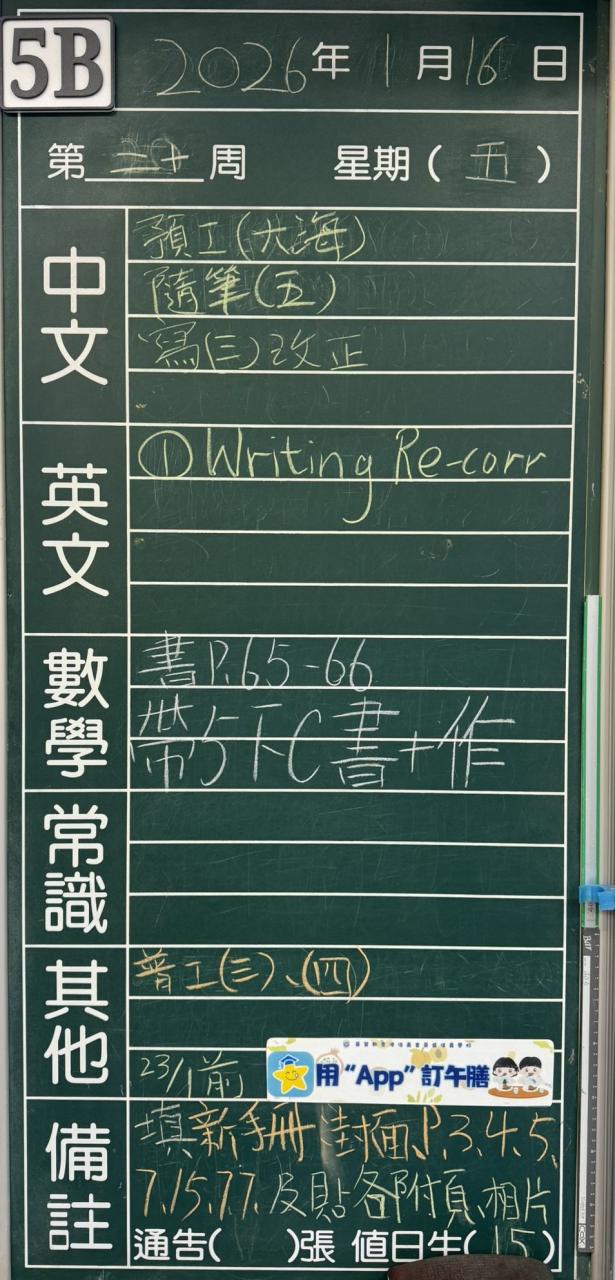 5B
2026年1月16日
第二十周 星期(五)
中文
預工(大海)
隨筆(五)
寫(三)改正
英文
①Writing Re-corr
數學
書P.65-66
帶5下C書+作
常識
其他
普工(三)、(四)
23/1前
用“App”訂午膳
備註
填新手冊封面、P.3.4.5.
7.15.77.及貼各附頁、相片
通告( )張 值日生(15)